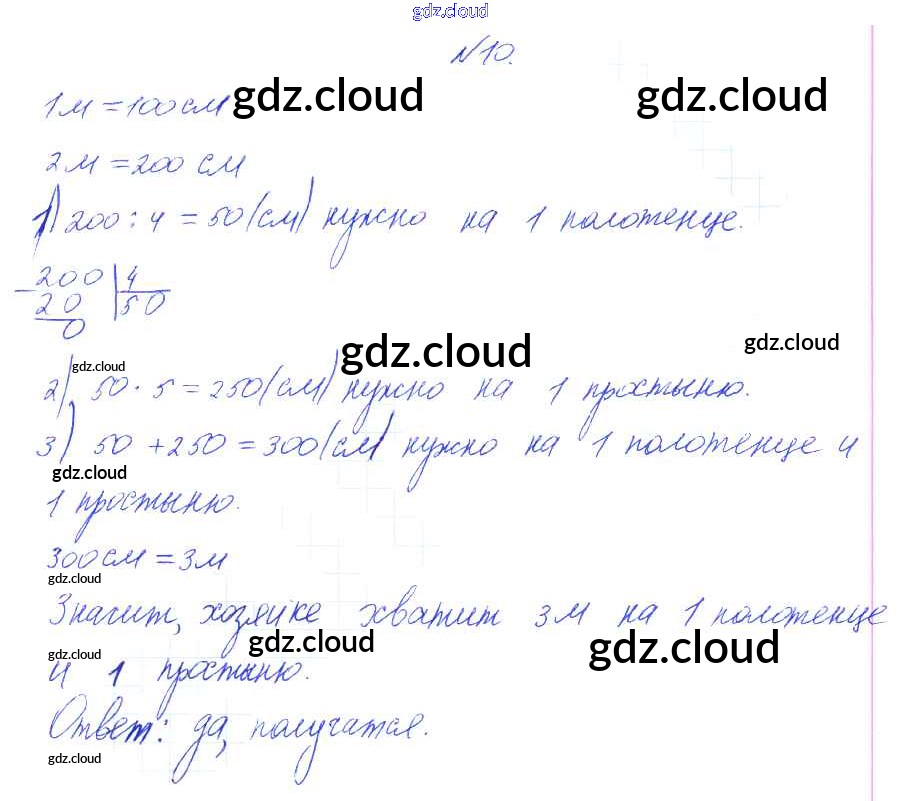 gdz.cloud
№10.
1м = 100 см gdz.cloud gdz.cloud
2м = 200 см
1) 200 : 4 = 50 (см) нужно на 1 полотенце.
200 | 4
20 | 50
0
gdz.cloud gdz.cloud
gdz.cloud
2) 50 · 5 = 250 (см) нужно на 1 простыню.
3) 50 + 250 = 300 (см) нужно на 1 полотенце и
gdz.cloud
1 простыню.
300 см = 3м
gdz.cloud
Значит, хозяйке хватит 3м на 1 полотенце
gdz.cloud gdz.cloud gdz.cloud
и 1 простыню.
Ответ: да, получатся.
gdz.cloud